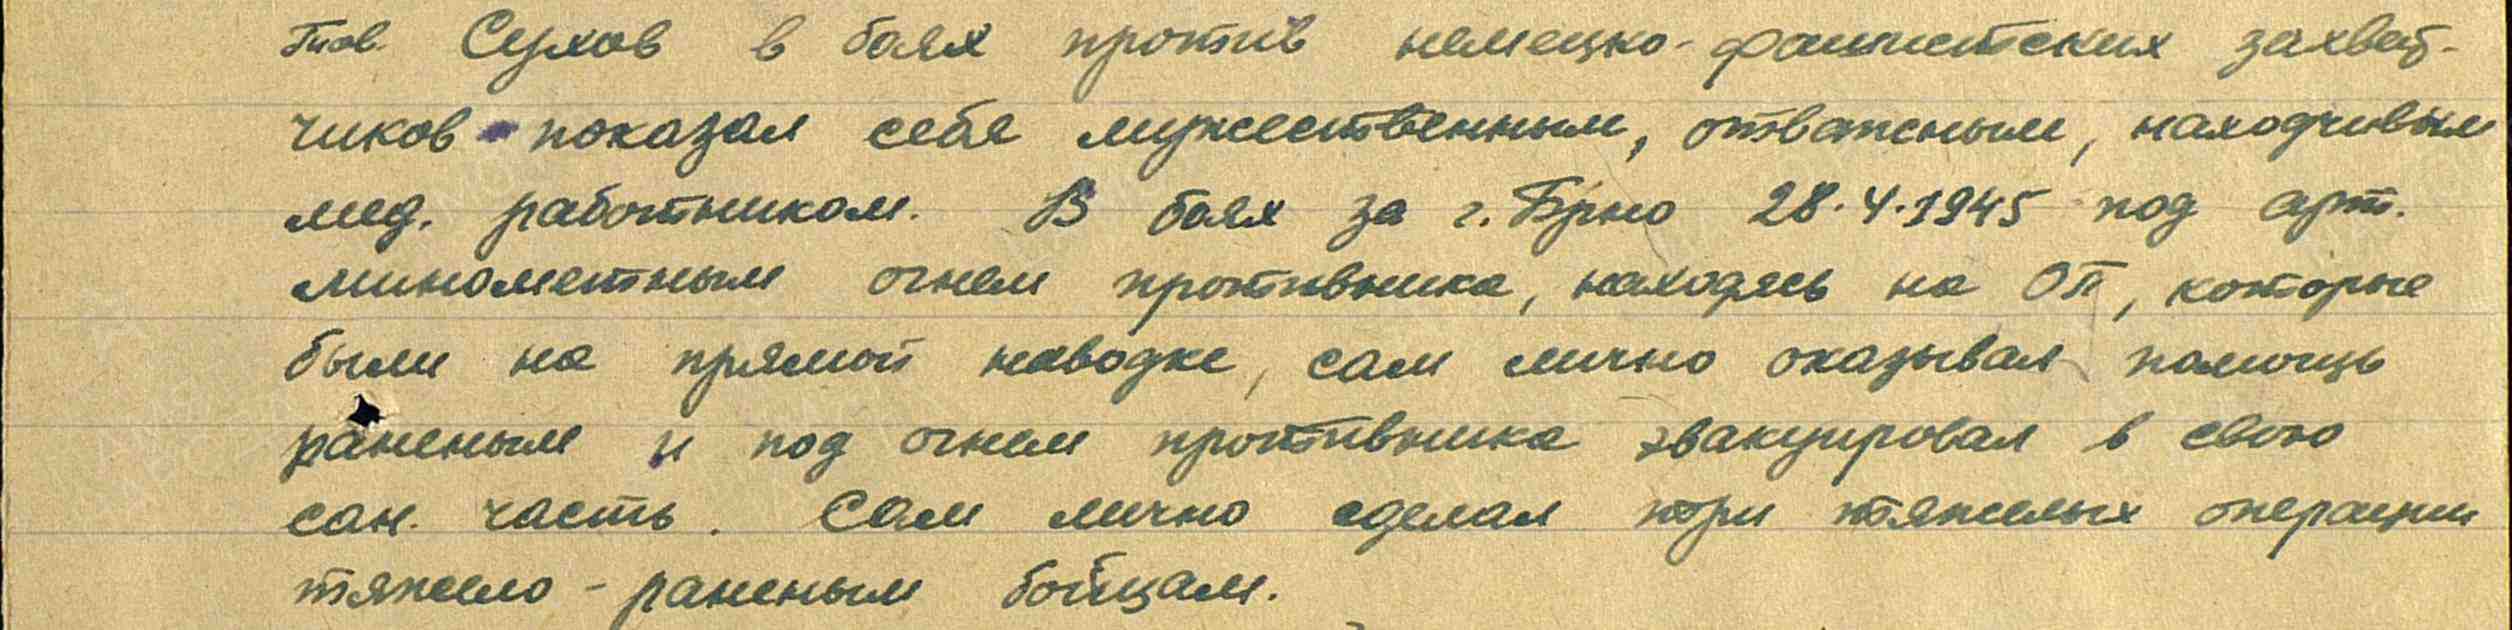 Тов. Сухов в боях против немецко-фашистских захват-
чиков показал себя мужественным, отважным, находчивым
мед. работником. В боях за г. Брно 28.4.1945 под арт.
минометным огнем противника, находясь на ОП, которые
были на прямой наводке, сам лично оказывал помощь
раненым и под огнем противника эвакуировал в свою
сан. часть. Сам лично сделал три тяжелых операции
тяжело-раненым бойцам.